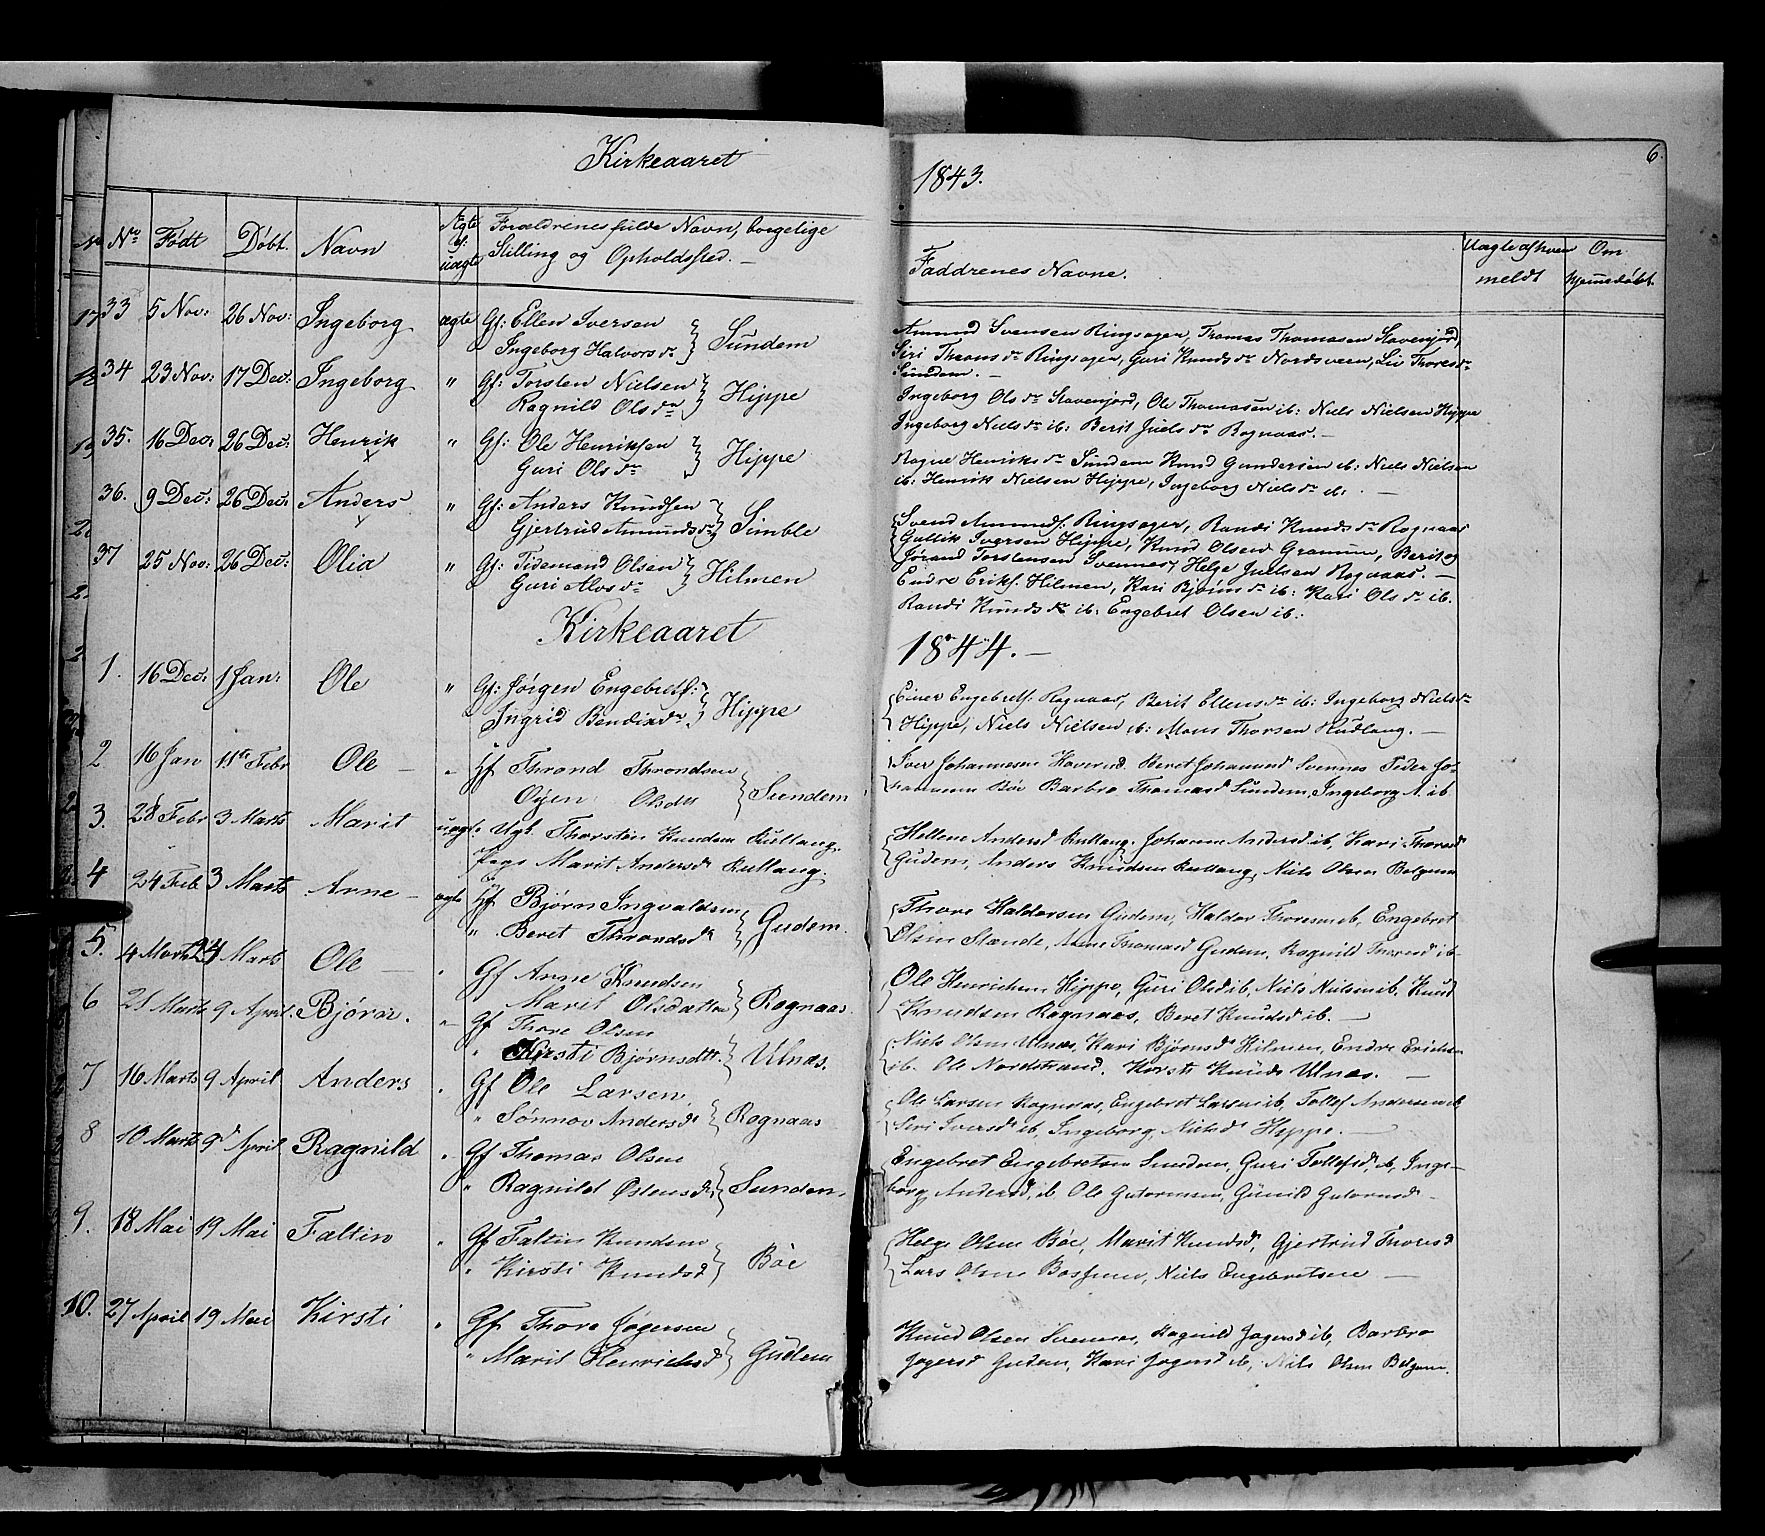 Kirkeaaret
No Født Døbt. Navn Ægte el: uægte Forældrenes fulde Navn, borgelige
Stilling og Opholdssted. —
33 5 Nov: 26 Nov: Ingeborg ægte Gf: Ellen Iversen
Ingeborg Halvorsdr } Sundem
34 23 Nov: 17 Dec: Ingeborg " Gf: Torsten Nielsen
Ragnild Olsdr } Hippe
35. 16 Dec: 26 Dec: Henrik " Gf: Ole Henriksen
x Guri Olsdr } Hippe
36. 9 Dec: 26 Dec: Anders " Gf: Anders Knudsen
x Gjertrud Amundsdr } Simble
37 25 Nov: 26 Dec: Olia " Gf: Tidemand Olsen
Guri Alvsdr } Hilmen
Kirkeaaret
1. 16 Dec: 1 Jan: Ole " Gf: Jørgen Engebretf:
Ingrid Bendixdr } Hippe
2 16 Jan 11te Febr Ole — " Gf Thrond Throndsen
Olsdtr } Sundem
3. 28 Febr 3 Marts Marit uægte Ugk. Thorsten Knudsen Rullang.
Pige Marit Andersd Rullang.
4 24 Feb 3 Marts Arne — ægte Gf Bjørn Ingvaldsen
" Beret Throndsd } Gudem.
5. 4 Marts 24 Marts Ole — " Gf Arne Knudsen
" Marit Olsdatter } Rognaas.
6 21 Marts 9 April. Bjørn. " Gf Thore Olsen
" Kirsti Bjørnsdtr. } Ulnæs.
7 16 Marts 9 April Anders " Gf Ole Larsen,
" Sønnov Andersd } Rognaas
8 10 Marts 9d April Ragnild " Gf Thomas Olsen
" Ragnild Østensd } Sundem.
9. 18 Mai 19 Mai Faltin " Gf Faltin Knudsen
" Kirsti Knudsd } Bøe
10. 27 April 19 Mai Kirsti " Gf Thore Jøgersen
" Marit Henrichsd } Gudem
6.
1843.
Faddrenes Navne. Uægte af hvem meldt Om hjemmedøbt.
Amund Svensen Ringsager, Tromas Thomasen Stavenjord,
Siri Thronsdr Ringsager, Guri Knudsdr Nordsveen, Liv Thoresdr
Sundem. —
Ingeborg Olsdr Stavenjord, Ole Thomasen ib: Niels Nielsen Hippe
Ingeborg Nielsdr ib: Berit Juelsdr Rognaas. —
Ragne Henriksdr Sundem Knud Gundersen ib: Niels Nielsen
ib: Henrik Nielsen Hippe, Ingeborg Nielsdr ib: —
Svend Amundf. Ringsager, Randi Knudsdr Rognaas
Gullik Iversen Hippe, Knud Olsen Berit og
Jørand Torstensen Svennes, Helge Juelsen Rognaas. —
Endre Erikf. Hilmen, Kari Bjørnsdr ib: Kari Olsdr ib.
Randi Knudsdr ib: Engebret Olsen ib:
1844. —
Einer Engebretf. Rognaas, Berit Ellensdr ib: Ingeborg Nielsdr
Hippe, Niels Nielsen ib: Mons Thorsen Rudlang. —
Iver Johannesen Beret Johannesd Svennes Peder Jo-
hannesen Bøe Barbro Thomasd Sundem, Ingeborg N. ib
Hellene Andersd Rullang. Johanne Andersd ib, Kari Thoresd
Gudem, Anders Knudsen Rullang, Niels Olsen
Thore Haldorsen Gudem, Haldor Thoresen ib, Engebret
Olsen Stande, Anne Thomasd Gudem, Ragnild Thoresd ib
Ole Henrichsen Hippe, Guri Olsd ib, Niels Nielsen ib. Knud
Knudsen Rognaas, Beret Knudsd ib. —
Niels Olsen Ulnæs, Kari Bjørnsd Hilmen, Endre Erichsen
ib. Ole Nordstrand. Kirsti Knudsd Ulnæs. —
Ole Larsen Rognaas, Engebret Larsen ib, Tollef Andersen ib
Siri Iversd ib, Ingeborg Nielsd Hippe. —
Engebret Engebretsen Sundem, Guri Tollefsd, ib, Inge-
borg Andersd, ib. Ole Gutormsen, Gunild Gutormsd —
Helge Olsen Bøe, Marit Knudsd, Gjertrud Thoresd
Lars Olsen Niels Engebretsen —
Knud Olsen Svennes, Ragnild Jøgersd ib, Barbro
Jøgersd Gudem, Kari Jøgersd ib, Niels Olsen